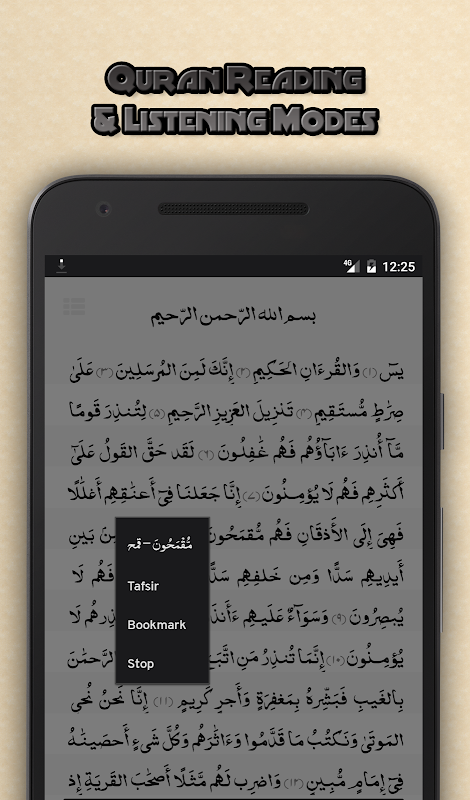 QURAN READING
& LISTENING MODES
4G 12:25
بسم الله الرّحمن الرّحيم
يسٓ (١) وَالقُرءَانِ الحَكِيمِ (٢) إِنَّكَ لَمِنَ المُرسَلِينَ (٣) عَلَىٰ
صِرَٰطٍ مُّستَقِيمٍ (٤) تَنزِيلَ العَزِيزِ الرَّحِيمِ (٥) لِتُنذِرَ قَومًا
مَّآ أُنذِرَ ءَابَآؤُهُم فَهُم غَٰفِلُونَ (٦) لَقَد حَقَّ القَولُ عَلَىٰٓ
أَكثَرِهِم فَهُم لَا يُؤمِنُونَ (٧) إِنَّا جَعَلنَا فِىٓ أَعنَٰقِهِم أَغلَٰلًا
فَهِىَ إِلَى الأَذقَانِ فَهُم مُّقمَحُونَ بَينِ
أَيدِيهِم سَدًّا وَمِن خَلفِهِم سَدًّا فَهُم لَا
يُبصِرُونَ (٩) وَسَوَآءٌ عَلَيهِم ءَأَنذَ لَا
يُؤمِنُونَ (١٠) إِنَّمَا تُنذِرُ مَنِ اتَّبَ الرَّحمَٰنَ
بِالغَيبِ فَبَشِّرهُ بِمَغفِرَةٍ وَأَجرٍ كَرِيمٍ (١١) إِنَّا نَحنُ نُحىِ
المَوتَىٰ وَنَكتُبُ مَا قَدَّمُوا وَءَاثَٰرَهُم وَكُلَّ شَىءٍ أَحصَينَٰهُ
فِىٓ إِمَامٍ مُّبِينٍ (١٢) وَاضرِب لَهُم مَّثَلًا أَصحَٰبَ القَريَةِ إِذ
مُّقْمَحُونَ – قمح
Tafsir
Bookmark
Stop